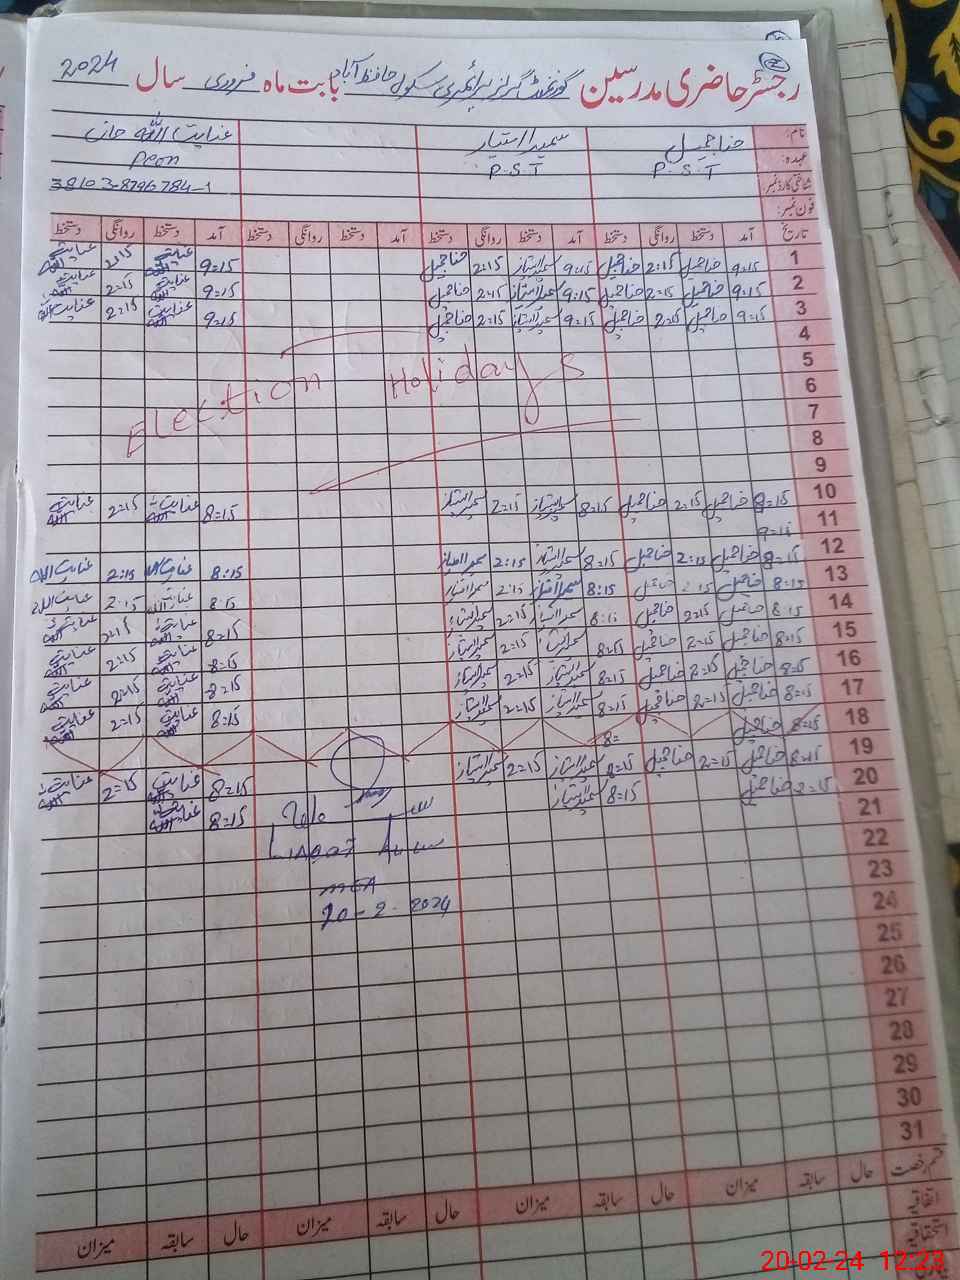 رجسٹر حاضری مدرسین گورنمنٹ گرلز پرائمری سکول حافظ آباد بابت ماہ فروری سال 2024
نام: حنا جمیل سمیرا امتیاز عنایت اللہ خان
عہدہ: P.S.T P.S.T Peon
شناختی کارڈ نمبر: 38103-8796784-1
فون نمبر:
تاریخ آمد دستخط روانگی دستخط آمد دستخط روانگی دستخط آمد دستخط روانگی دستخط آمد دستخط روانگی دستخط
1 9=15 حنا جمیل 2:15 حنا جمیل 9=15 سمیرا امتیاز 2:15 حنا جمیل 9=15 عنایت اللہ 2:15 عنایت اللہ
2 9=15 حنا جمیل 2=15 حنا جمیل 9:15 سمیرا امتیاز 2=15 حنا جمیل 9=15 عنایت اللہ 2=15 عنایت اللہ
3 9=15 حنا جمیل 2=15 حنا جمیل 9=15 سمیرا امتیاز 2=15 حنا جمیل 9=15 عنایت اللہ 2:15 عنایت اللہ
4
5
Election Holidays
6
7
8
9
10 8=15 حنا جمیل 2=15 حنا جمیل 8=15 سمیرا امتیاز 2=15 سمیرا امتیاز 8=15 عنایت اللہ 2=15 عنایت اللہ
11
12 8=15 حنا جمیل 2:15 حنا جمیل 8=15 سمیرا امتیاز 2:15 سمیرا امتیاز 8:15 عنایت اللہ 2:15 عنایت اللہ
13 8:15 حنا جمیل 2:15 حنا جمیل 8:15 سمیرا امتیاز 2:15 سمیرا امتیاز 8:15 عنایت اللہ 2:15 عنایت اللہ
14 8:15 حنا جمیل 2=15 حنا جمیل 8:15 سمیرا امتیاز 2=15 سمیرا امتیاز 8=15 عنایت اللہ 2:15 عنایت اللہ
15 8=15 حنا جمیل 2=15 حنا جمیل 8=15 سمیرا امتیاز 2:15 سمیرا امتیاز 8=15 عنایت اللہ 2=15 عنایت اللہ
16 8=15 حنا جمیل 2=15 حنا جمیل 8=15 سمیرا امتیاز 2=15 سمیرا امتیاز 8=15 عنایت اللہ 2=15 عنایت اللہ
17 8=15 حنا جمیل 2=15 حنا جمیل 8=15 سمیرا امتیاز 2=15 سمیرا امتیاز 8=15 عنایت اللہ 2=15 عنایت اللہ
18 8=15 حنا جمیل 8=
19 8=15 حنا جمیل 2=15 حنا جمیل 8=15 سمیرا امتیاز 2=15 سمیرا امتیاز 8=15 عنایت اللہ 2=15 عنایت اللہ
20 2=15 حنا جمیل 8=15 سمیرا امتیاز 8=15 عنایت اللہ
21
22
MEA
20-2-2024
23
24
25
26
27
28
29
30
31
قسم رخصت حال سابقہ میزان حال سابقہ میزان حال سابقہ میزان حال سابقہ میزان
اتفاقیہ
استحقاقیہ
20-02-24 12:23